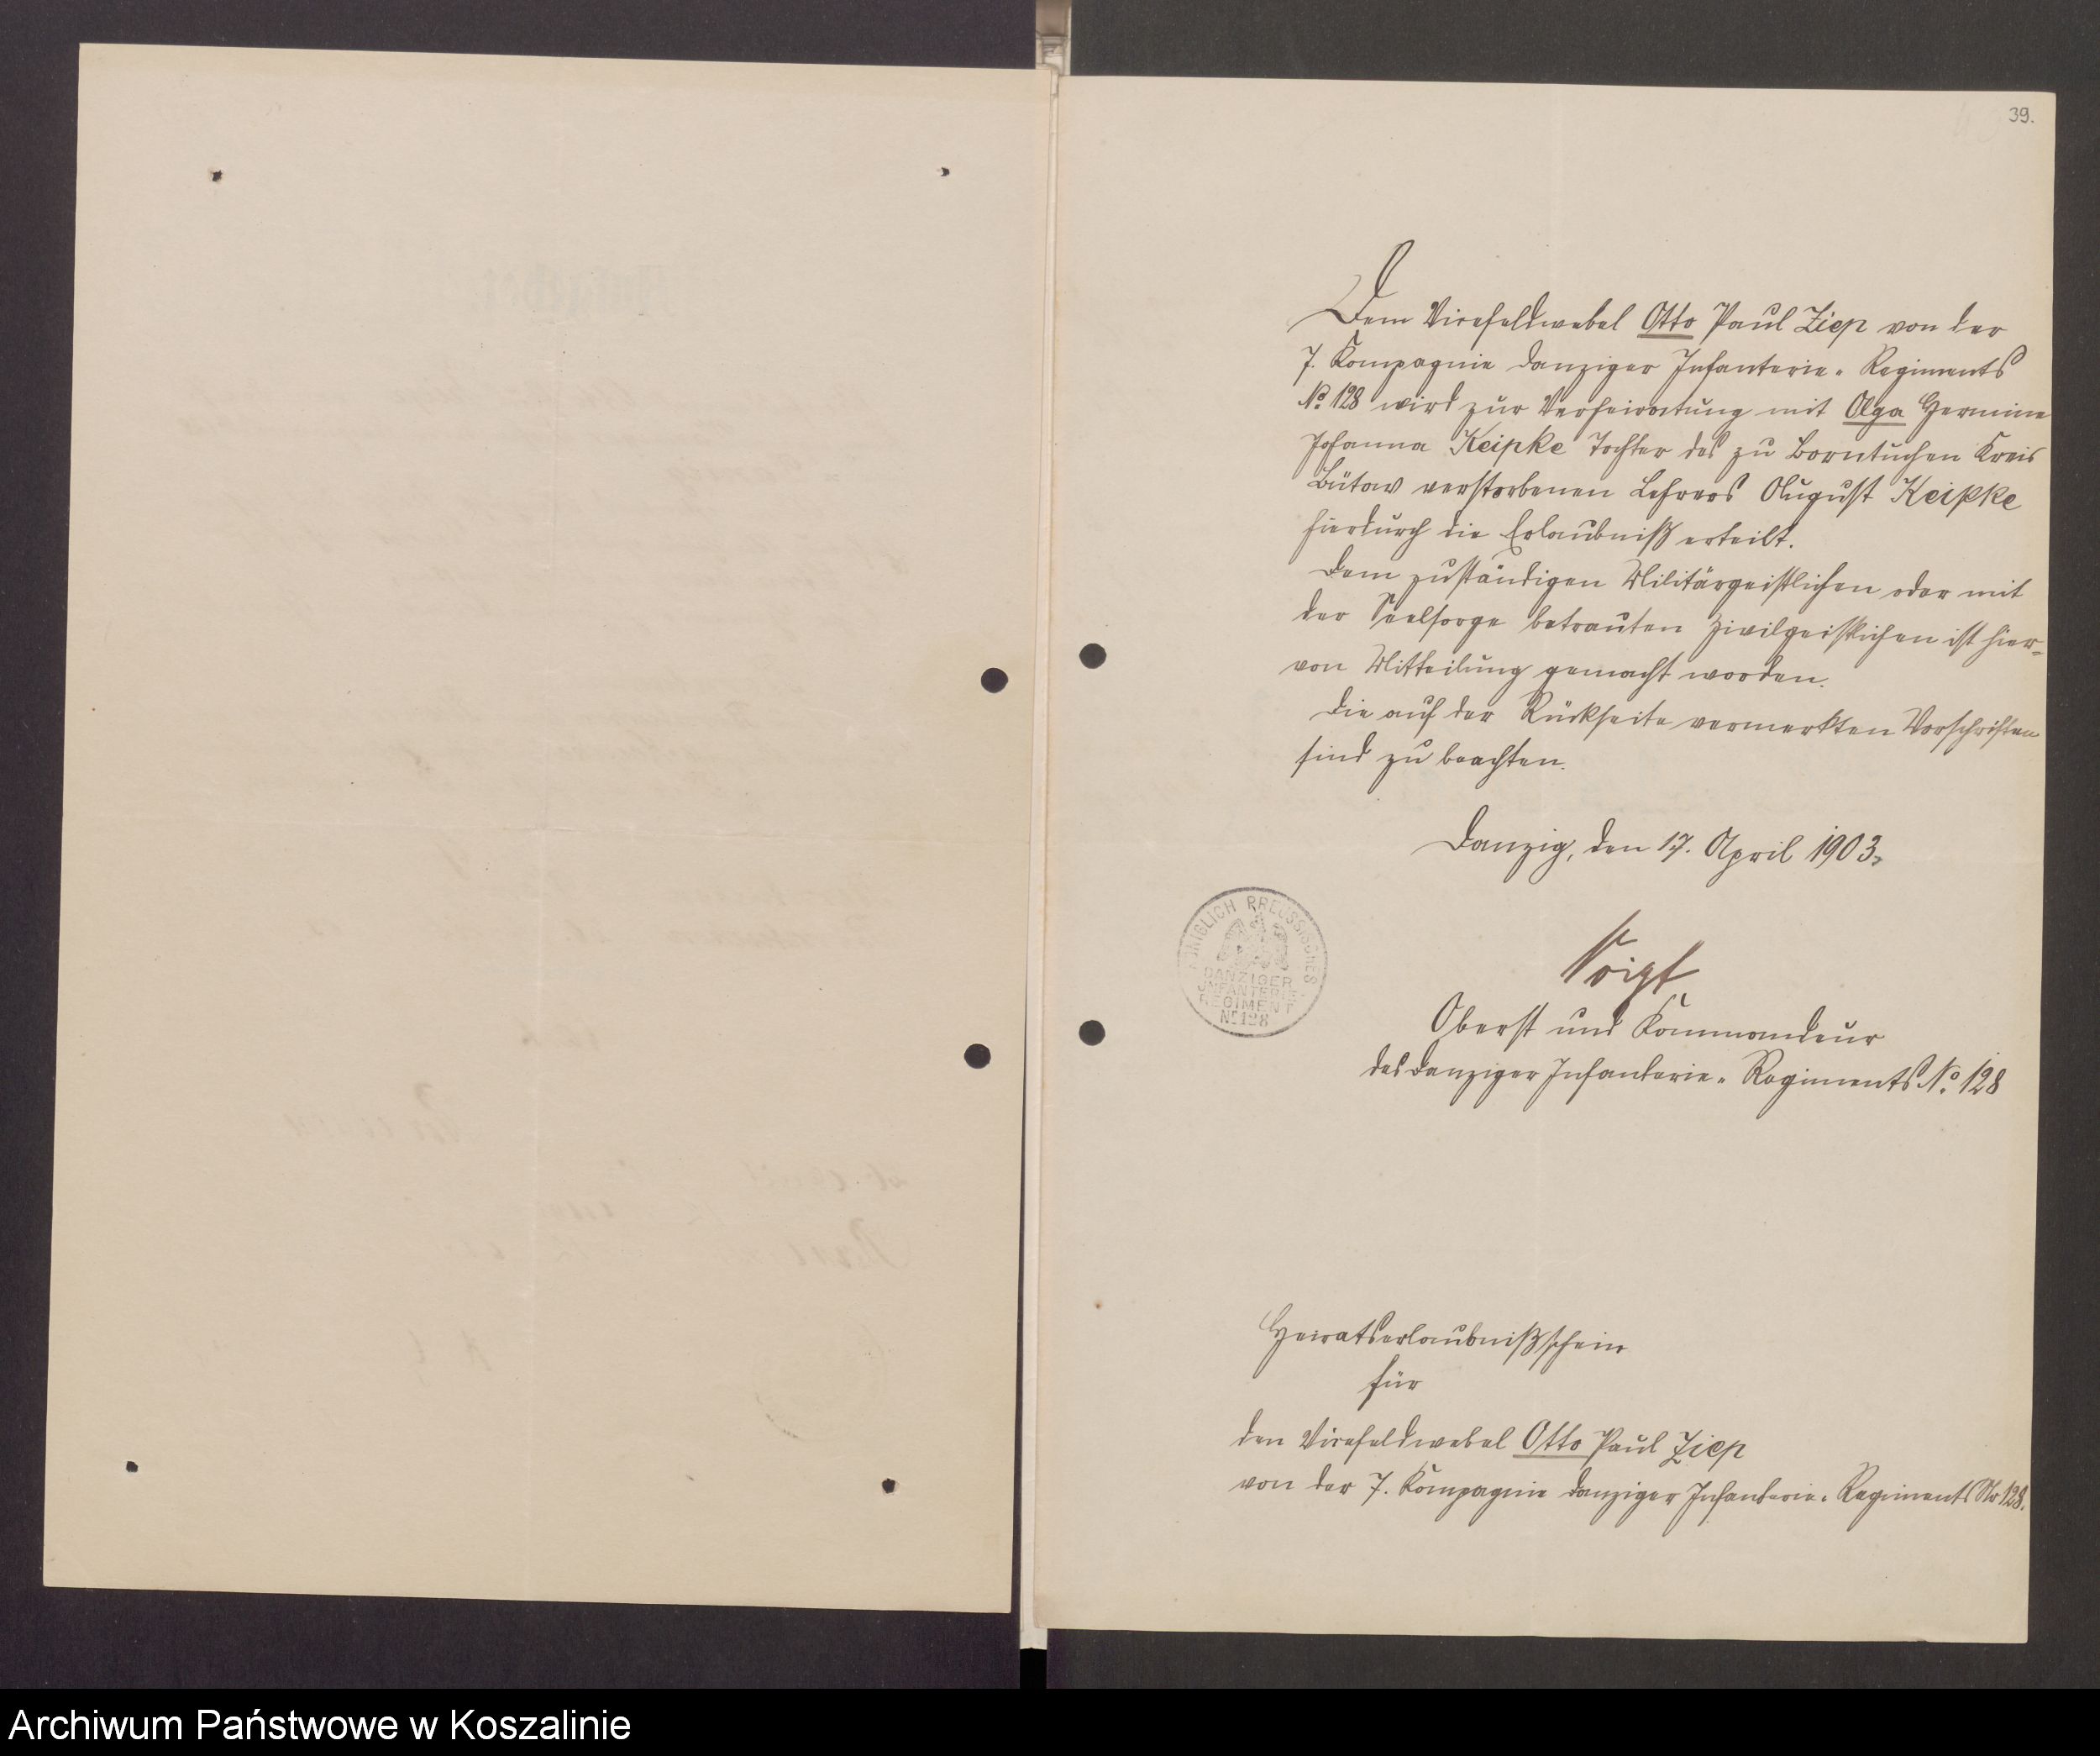 39.
Dem Vicefeldwebel Otto Paul Ziep von der
7. Kompagnie Danziger Infanterie-Regiments
No. 128 wird zur Verheiratung mit Olga Hermine
Johanna Keipke Tochter des zu Borntuchen Kreis
Bütow verstorbenen Lehrers August Keipke
hierdurch die Erlaubniß erteilt.
Dem zuständigen Militärgeistlichen oder mit
der Seelsorge betrauten Zivilgeistlichen ist hier-
von Mitteilung gemacht worden.
Die auf der Rückseite vermerkten Vorschriften
sind zu beachten.
Danzig, den 17. April 1903.
KÖNIGLICH PREUSSISCHES
DANZIGER
INFANTERIE
REGIMENT
No 128
Voigt
Oberst und Kommandeur
des Danziger Infanterie-Regiments No. 128
Heiratserlaubnißschein
für
den Vicefeldwebel Otto Paul Ziep
von der 7. Kompagnie Danziger Infanterie-Regiments No 128.
Archiwum Państwowe w Koszalinie